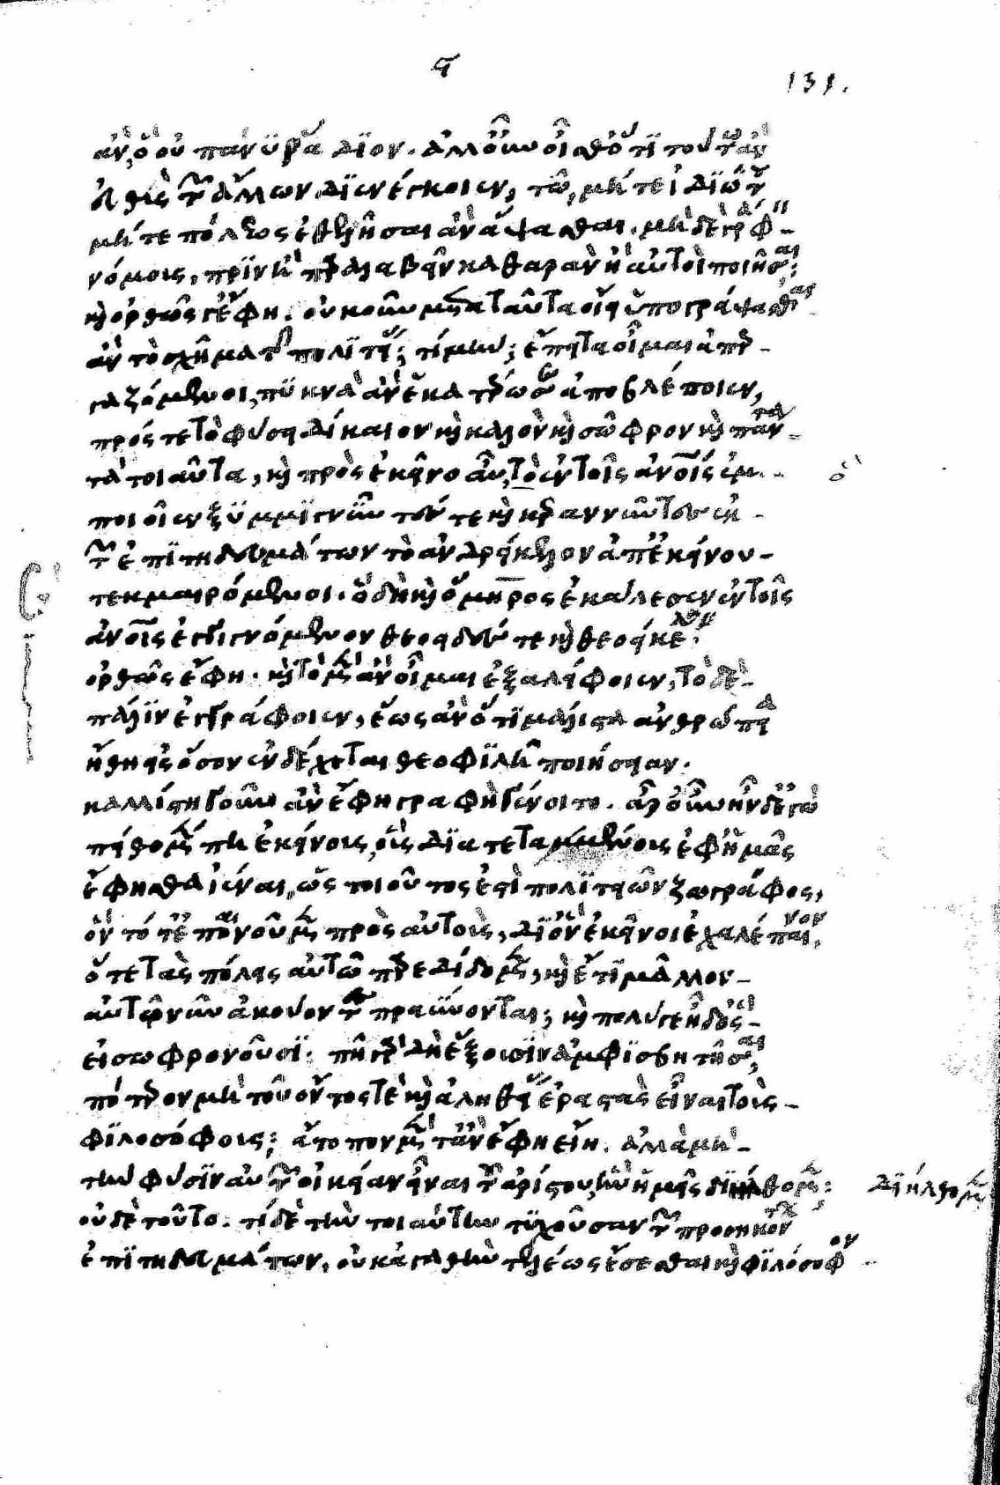 ϛ
131.
ἂν, ὃ οὐ πάνυ ῥᾴδιον. ἀλλ' οὖν οἶσθ' ὅτι τούτῳ ἂν
εὐθὺς τῶν ἄλλων διενέγκοιεν, τῷ, μήτε ἰδιώτου
μήτε πόλεως ἐθελῆσαι ἂν ἅψασθαι. μηδὲ γράφειν
νόμους, πρὶν ἢ παραλαβεῖν καθαρὰν ἢ αὐτοὶ ποιῆσαι;
καὶ ὀρθῶς γ' ἔφη. οὐκοῦν μετὰ ταῦτα οἴει ὑπογράψασθαι
ἂν τὸ σχῆμα τῆς πολιτείας; τί μήν; ἔπειτα οἶμαι ἀπερ-
γαζόμενοι, πυκνὰ ἂν ἑκατέρωσε ἀποβλέποιεν,
πρός τε τὸ φύσει δίκαιον καὶ καλὸν καὶ σῶφρον καὶ πάντα
τὰ τοιαῦτα, καὶ πρὸς ἐκεῖνο αὖ, τὸ ἐν τοῖς ἀνθρώποις ἐμ-
ποιοῖεν ξυμμιγνύντές τε καὶ κεραννύντες ἐκ
τῶν ἐπιτηδευμάτων τὸ ἀνδρείκελον ἀπ' ἐκείνου
τεκμαιρόμενοι. ὃ δὴ καὶ ὅμηρος ἐκάλεσεν ἐν τοῖς
ἀνθρώποις ἐγγιγνόμενον θεοειδές τε καὶ θεοείκελον
ὀρθῶς ἔφη. καὶ τὸ μὲν ἂν οἶμαι ἐξαλείφοιεν, τὸ δὲ
πάλιν ἐγγράφοιεν, ἕως ἂν ὅτι μάλιστα ἀνθρώπεια
ἤθη εἰς ὅσον ἐνδέχεται θεοφιλῆ ποιήσειαν.
καλλίστη γοῦν ἂν ἔφη γραφὴ γένοιτο. ἆρ' οὖν ἦν δ' ἐγὼ
πείθομέν πῃ ἐκείνους, οὓς διατεταμένους ἐφ' ἡμᾶς
ἔφησθα ἰέναι, ὡς τοιοῦτός ἐστι πολιτειῶν ζωγράφος,
ὃν τότ' ἐπῃνοῦμεν πρὸς αὐτοὺς, δι' ὃν ἐκεῖνοι ἐχαλέπαινον
ὅτι τὰς πόλεις αὐτῷ παρεδίδομεν, καὶ ἔτι μᾶλλον
αὐτὸ νῦν ἀκούοντες πραΰνονται; καὶ πολύ γε ἦ δ' ὃς
εἰ σωφρονοῦσι. πῇ γὰρ δὴ ἕξουσιν ἀμφισβητῆσαι;
πότερον μὴ τοῦ ὄντος τε καὶ ἀληθείας ἐραστὰς εἶναι τοὺς
φιλοσόφους; ἄτοπον μέντ' ἂν ἔφη εἴη. ἀλλὰ μὴ
τὴν φύσιν αὐτῶν οἰκείαν εἶναι τοῦ ἀρίστου, ἣν ἡμεῖς διήλθομεν;
διήλθομεν
οὐδὲ τοῦτο. τί δὲ τὴν τοιαύτην τυχοῦσαν τῶν προσηκόντων
ἐπιτηδευμάτων, οὐκ ἀγαθὴν τελέως ἔσεσθαι καὶ φιλόσοφον